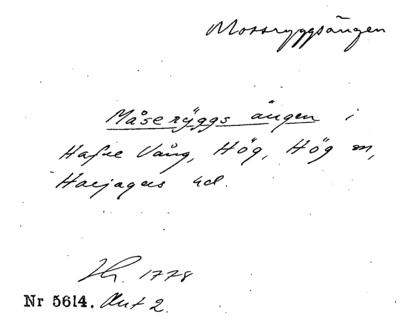 Mossryggsängen
Måseryggs ängen i
Hafre Vång, Hög, Hög sn,
Harjagers hd.
1778
Nr 5614. Akt 2.